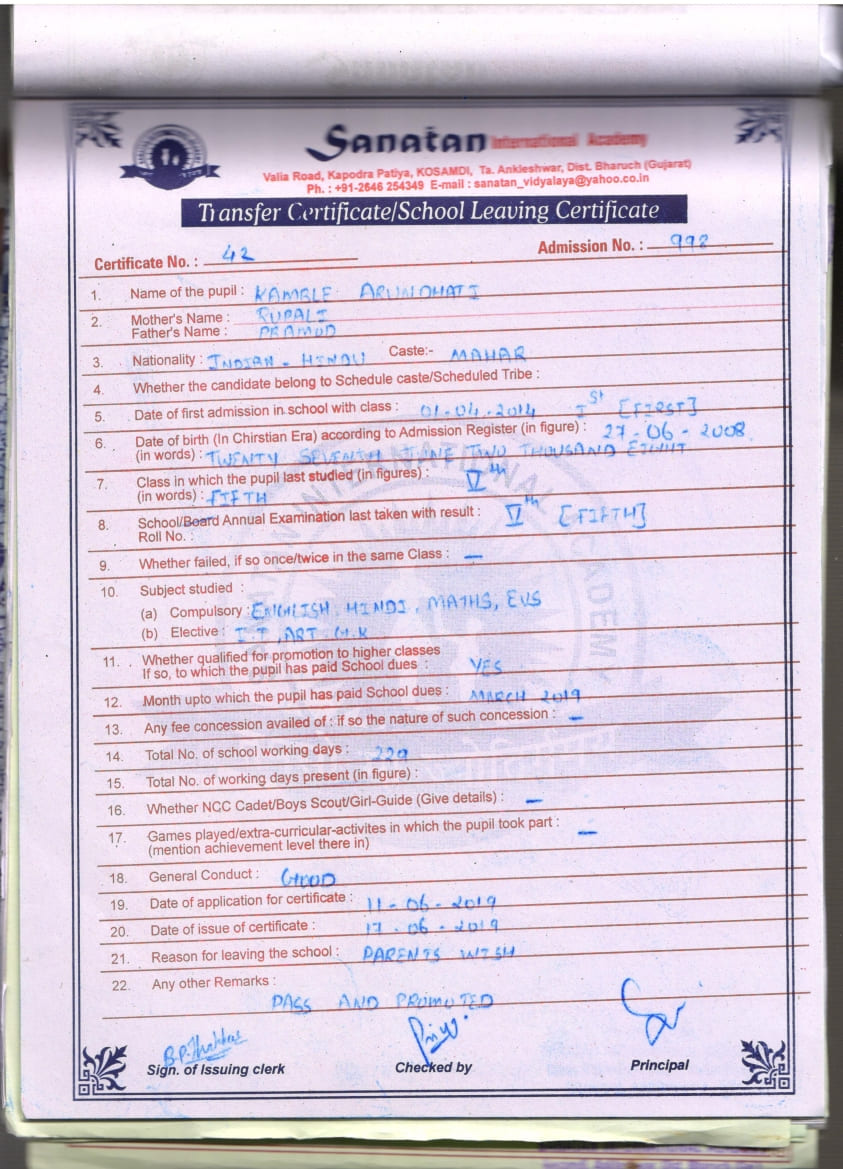 Sanatan International Academy
Valia Road, Kapodra Patiya, KOSAMDI, Ta. Ankleshwar, Dist. Bharuch (Gujarat)
Ph. : +91-2646 254349 E-mail : sanatan_vidyalaya@yahoo.co.in
Transfer Certificate/School Leaving Certificate
Certificate No. : 42 Admission No. : 992
1. Name of the pupil : KAMBLE ARUNDHATI
2. Mother's Name : RUPALI
Father's Name : PRAMOD
3. Nationality : INDIAN - HINDU Caste:- MAHAR
4. Whether the candidate belong to Schedule caste/Scheduled Tribe :
5. Date of first admission in school with class : 01-04-2014 Ist [FIRST]
6. Date of birth (In Chirstian Era) according to Admission Register (in figure) : 27-06-2008
(in words) : TWENTY SEVENTH JUNE TWO THOUSAND EIGHT
7. Class in which the pupil last studied (in figures) : Vth
(in words) : FIFTH
8. School/Board Annual Examination last taken with result : Vth [FIFTH]
Roll No. :
9. Whether failed, if so once/twice in the same Class : —
10. Subject studied :
(a) Compulsory : ENGLISH, HINDI, MATHS, EVS
(b) Elective : I.T, ART, G.K
11. Whether qualified for promotion to higher classes
If so, to which the pupil has paid School dues : YES
12. Month upto which the pupil has paid School dues : MARCH 2019
13. Any fee concession availed of : if so the nature of such concession : —
14. Total No. of school working days : 229
15. Total No. of working days present (in figure) :
16. Whether NCC Cadet/Boys Scout/Girl-Guide (Give details) : —
17. Games played/extra-curricular-activites in which the pupil took part : —
(mention achievement level there in)
18. General Conduct : GOOD
19. Date of application for certificate : 11-06-2019
20. Date of issue of certificate : 17-06-2019
21. Reason for leaving the school : PARENTS WISH
22. Any other Remarks :
PASS AND PROMOTED
B.P.Thakkar
Sign. of Issuing clerk Checked by Principal